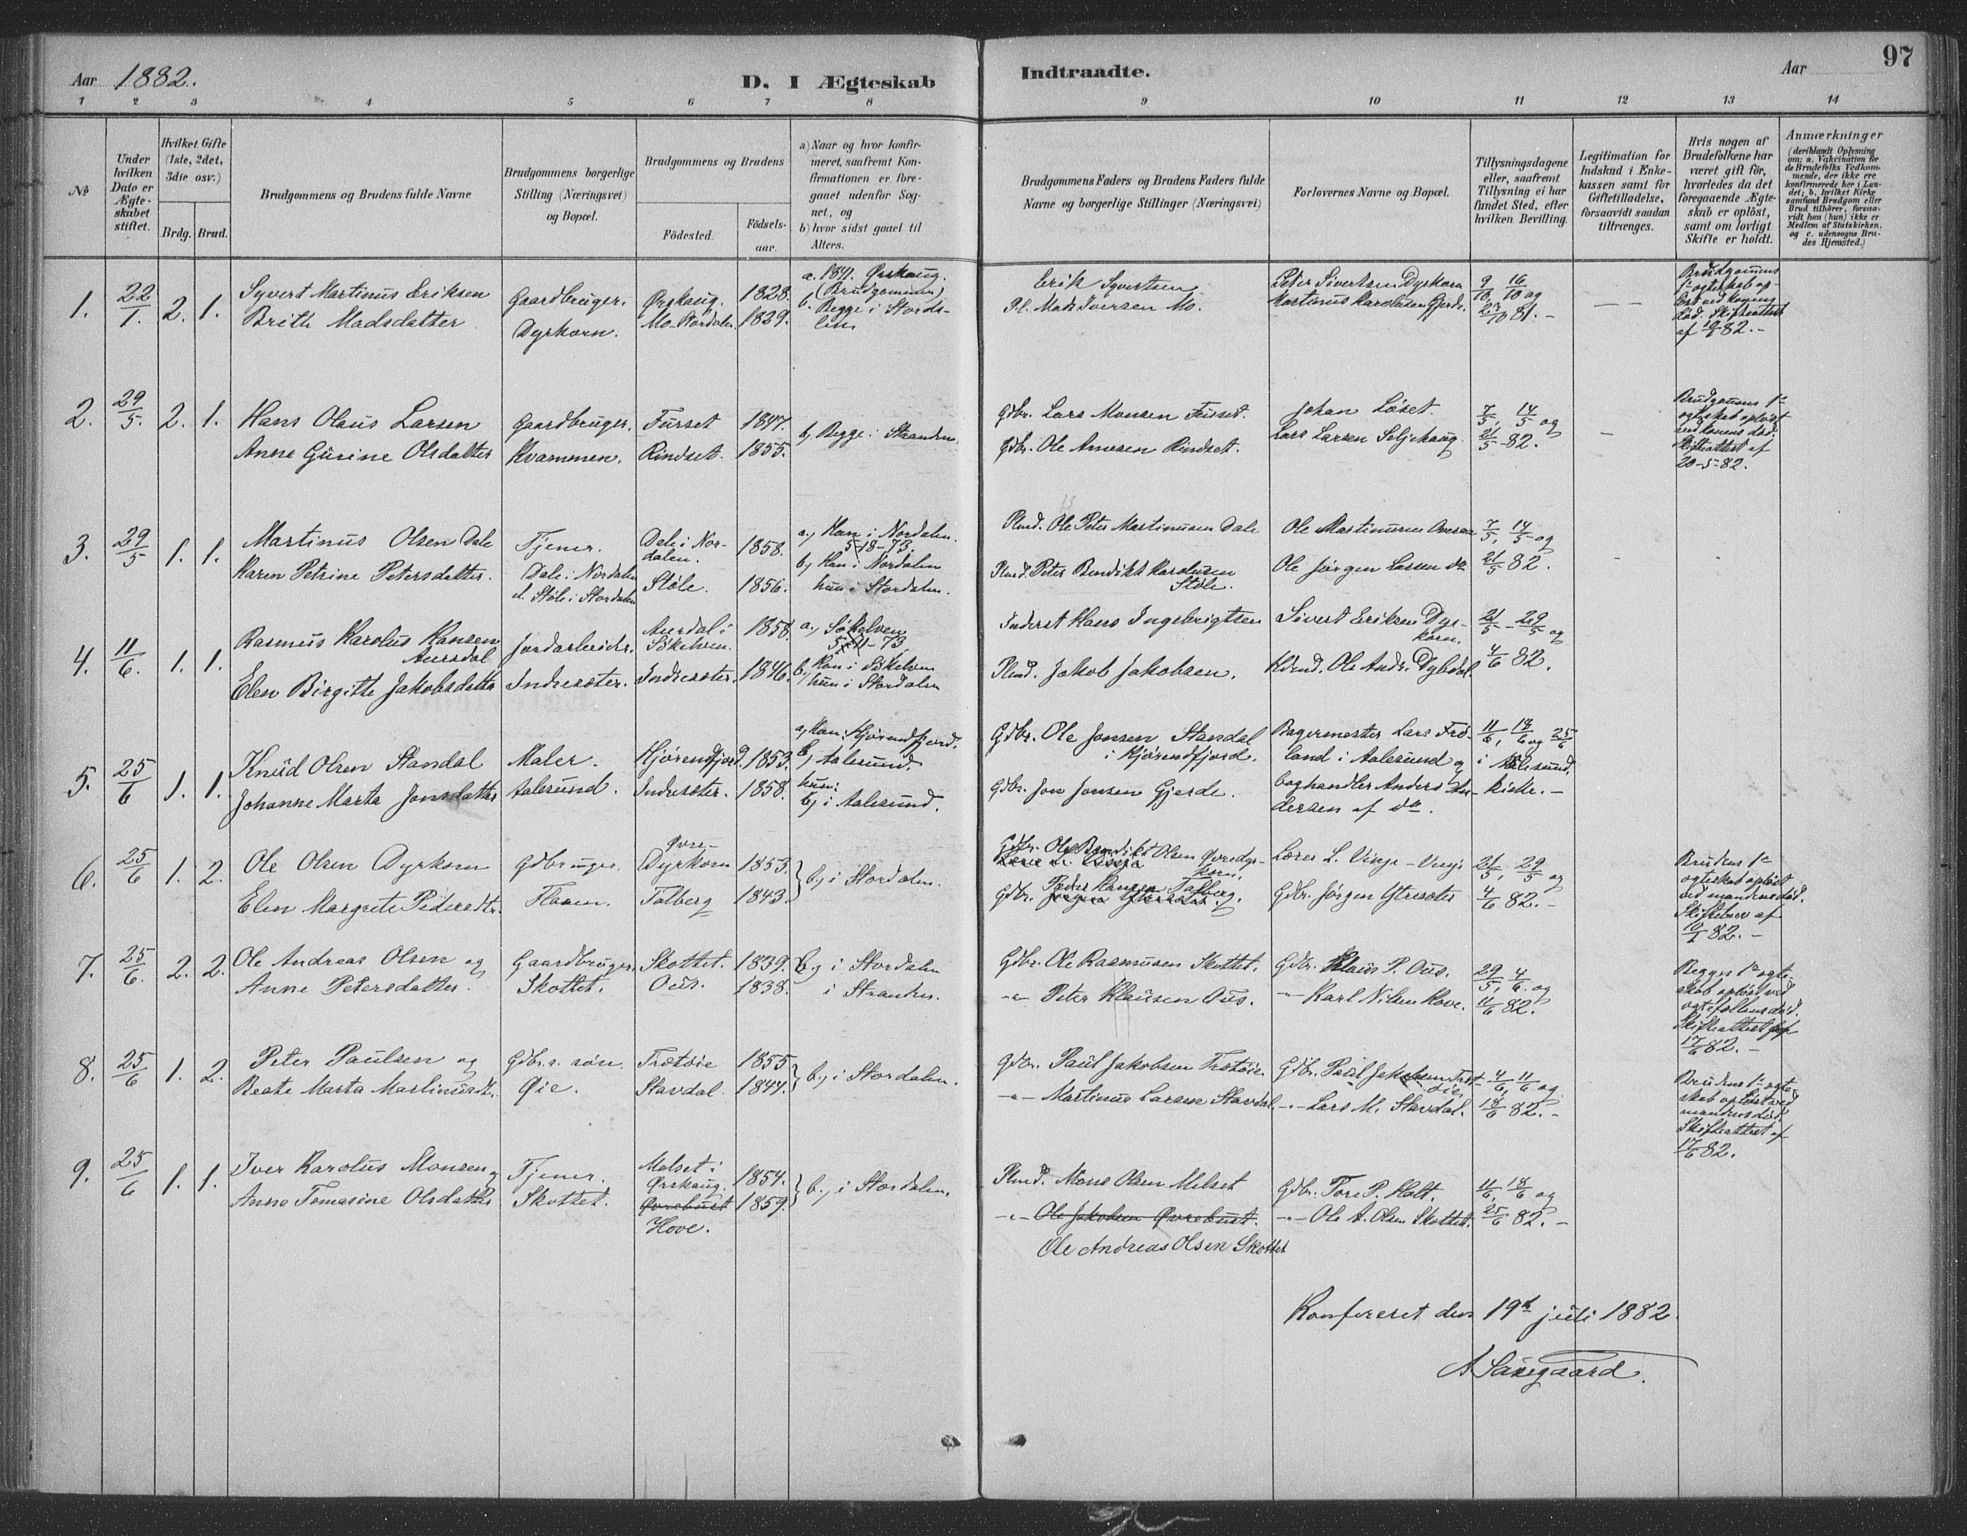 Aar 1882.
D. I Ægteskab
Indtraadte.
Aar
97
1 2 3 4 5 6 7 8 9 10 11 12 13 14
No
Under hvilken Dato er Ægteskabet stiftet.
Hvilket Gifte (1ste, 2det, 3die osv.)
Brdg. Brud.
Brudgommens og Brudens fulde Navne
Brudgommens borgerlige Stilling (Næringsvei) og Bopæl.
Brudgommens og Brudens
Födested. Födselsaar.
a) Naar og hvor konfirmeret, saafremt Konfirmationen er foregaaet udenfor Sognet, og
b) hvor sidst gaaet til Alters.
Brudgommens Faders og Brudens Faders fulde Navne og borgerlige Stillinger (Næringsvei)
Forlovernes Navne og Bopæl.
Tillysningsdagene eller, saafremt Tillysning ei har fundet Sted, efter hvilken Bevilling.
Legitimation for Indskud i Enkekassen samt for Giftetilladelse, forsaavidt saadan tiltrænges.
Hvis nogen af Brudefolkene har været gift før, hvorledes da det foregaaende Ægteskab er opløst, samt om lovligt Skifte er holdt.
Anmærkninger (deriblandt Oplysning om; a. Vakcination for de Brudefolks Vedkommende, der ikke ere konfirmerede her i Landet; b. hvilket Kirkesamfund Brudgom eller Brud tilhører, forsaavidt han (hun) ikke er Medlem af Statskirken, og c. udensogns Brudes Hjemsted.)
1. 22/1. 2. 1. Syvert Martinus Eriksen Gaardbruger. Ørskaug. 1828. a. 1841. Ørskaug. (Brudgommen)
Brith Madsdatter Dyrkorn. Mo-Stordalen 1839. b. Begge i Stordalen
Erik Syvertsen Peter Sivertsen Dyrkorn 9/10, 16/10 og
Pl. Mads Iversen Mo. Martinus Karolusen Gjerde. 23/10 81.-
— —
Brudgommens 1ste ægteskab opløst ved konens död. Skifteattest af 82.-
2. 29/5. 2. 1. Hans Olaus Larsen Gaardbruger. Furset 1847.
Anne Gurine Olsdatter Kvammen. Rindset. 1855. b, Begge i Stranden.
Gdbr. Lars Monsen Furset. Johan Løset. 7/5, 14/5 og
Gdbr. Ole Amesen Rindset. Lars Larsen Seljehaug. 21/5 - 82.
—
Brudgommens 1ste ægteskab opløst ved konens död. Skifteattest af 20-5-82.
3. 29/5 1. 1. Martinus Olsen Dale Tjener. Dale i Nordalen. 1858. a, Han i Nordalen. 5/10-73.
Karen Petrine Petersdatter. Dale i Nordalen d. Støle i Stordalen Støle. 1856. b, Han i Nordalen hun i Stordalen.
Plmd. Ole Peter Martinusen Dale Ole Martinusen 7/5, 14/5 og
Plmd. Peter Bendikt Karolusen Støle. Ole Jørgen Larsen do 21/5 82.
4. 11/6. 1. 1. Rasmus Karolus Hansen Aursdal Jordarbeider. Aurdal i Sökelven. 1858. a, Sökelven 73.
Elen Birgitte Jakobsdatter Indresæter. Indresæter. 1846. b, Han i Sökelven hun i Stordalen
Inderst Hans Ingebrigtsen Sivert Eriksen Dyrkorn. 21/5 - 29/5 og
Plmd. Jakob Jakobsen. Kdmd. Ole Andr. Dybdal. 4/6 82.
5. 25/6 1. 1. Knud Olsen Standal Maler. Hjørendfjord. 1853. a, Han: Hjörendfjord. b, Aalesund.
Johanne Marta Jonsdatter Aalesund. Indresæter. 1858. hun: b, i Aalesund.
Gdbr. Ole Jonsen Standal i Hjörendfjord. Bagermester Lars Fröland i Aalesund og 11/6, 18/6 og 25/6 i Aalesund
Gdbr. Jon Jonsen Gjerde. boghandler Anders Andersen af do. kirke.-
6. 25/6 1. 2. Ole Olsen Dyrkorn Gdbruger. Øvre-Dyrkorn 1853.
Elen Margrete Pedersdtr. Flaaen. Talberg 1843. b, i Stordalen.
Gdbr. Ole Bendikt Olsen Øvredyrkorn. Lærer L. Vinje - Vinje 21/5, 29/5 og
Gdbr. Peder Hansen Talberg. Gdbr. Jørgen Ytresæter 4/6 82.-
Brudens 1ste ægteskab opløst ved mandens död. Skiftebrev af 82.-
7. 25/6. 2. 2. Ole Andreas Olsen og Gaardbruger. Skottet. 1839. b, i Stordalen
Anne Petersdatter. Skottet. Ous. 1838. i Stranden.
Gdbr. Ole Rasmusen Skottet. Gdbr. Klaus P. Ous. 29/5, 4/6. og
-"- Peter Klausen Ous. -"- Karl Nilsen Hove. 11/6 82.
Begges 1ste ægteskab opløst ved ægtefællens död. Skifteattest af 17/6 82.-
8. 25/6 1. 2. Peter Paulsen og Gdbr.s. søn Trætöie 1855
Beate Marta Martinusdtr. Øie. Stavdal. 1844. b, i Stordalen.
Gdbr. Paul Jakobsen Trætöie. Gdbr. Paul Jakobsen Trætöie. 4/6, 11/6 og
-"- Martinus Larsen Stavdal -"- Lars M. Stavdal. 18/6 82.-
Brudens 1ste ægteskab opløst ved mandens död. Skifteattest af 17/6 82.
9. 25/6 1. 1. Iver Karolus Monsen og Tjener. Melset i Ørskaug. 1854.
Anne Tomasine Olsdatter Skottet. Øvrebust 1859. b, i Stordalen.
Hove.
Plmd. Mons Olsen Melset Gdbr. Tore P. Holt. 11/6, 18/6 og
-"- Ole Jakobsen Øvrebust. -"- Ole A. Olsen Skottet. 25/6 82.-
Ole Andreas Olsen Skottet
Konfereret den 19de juli 1882.
A Saxegaard.